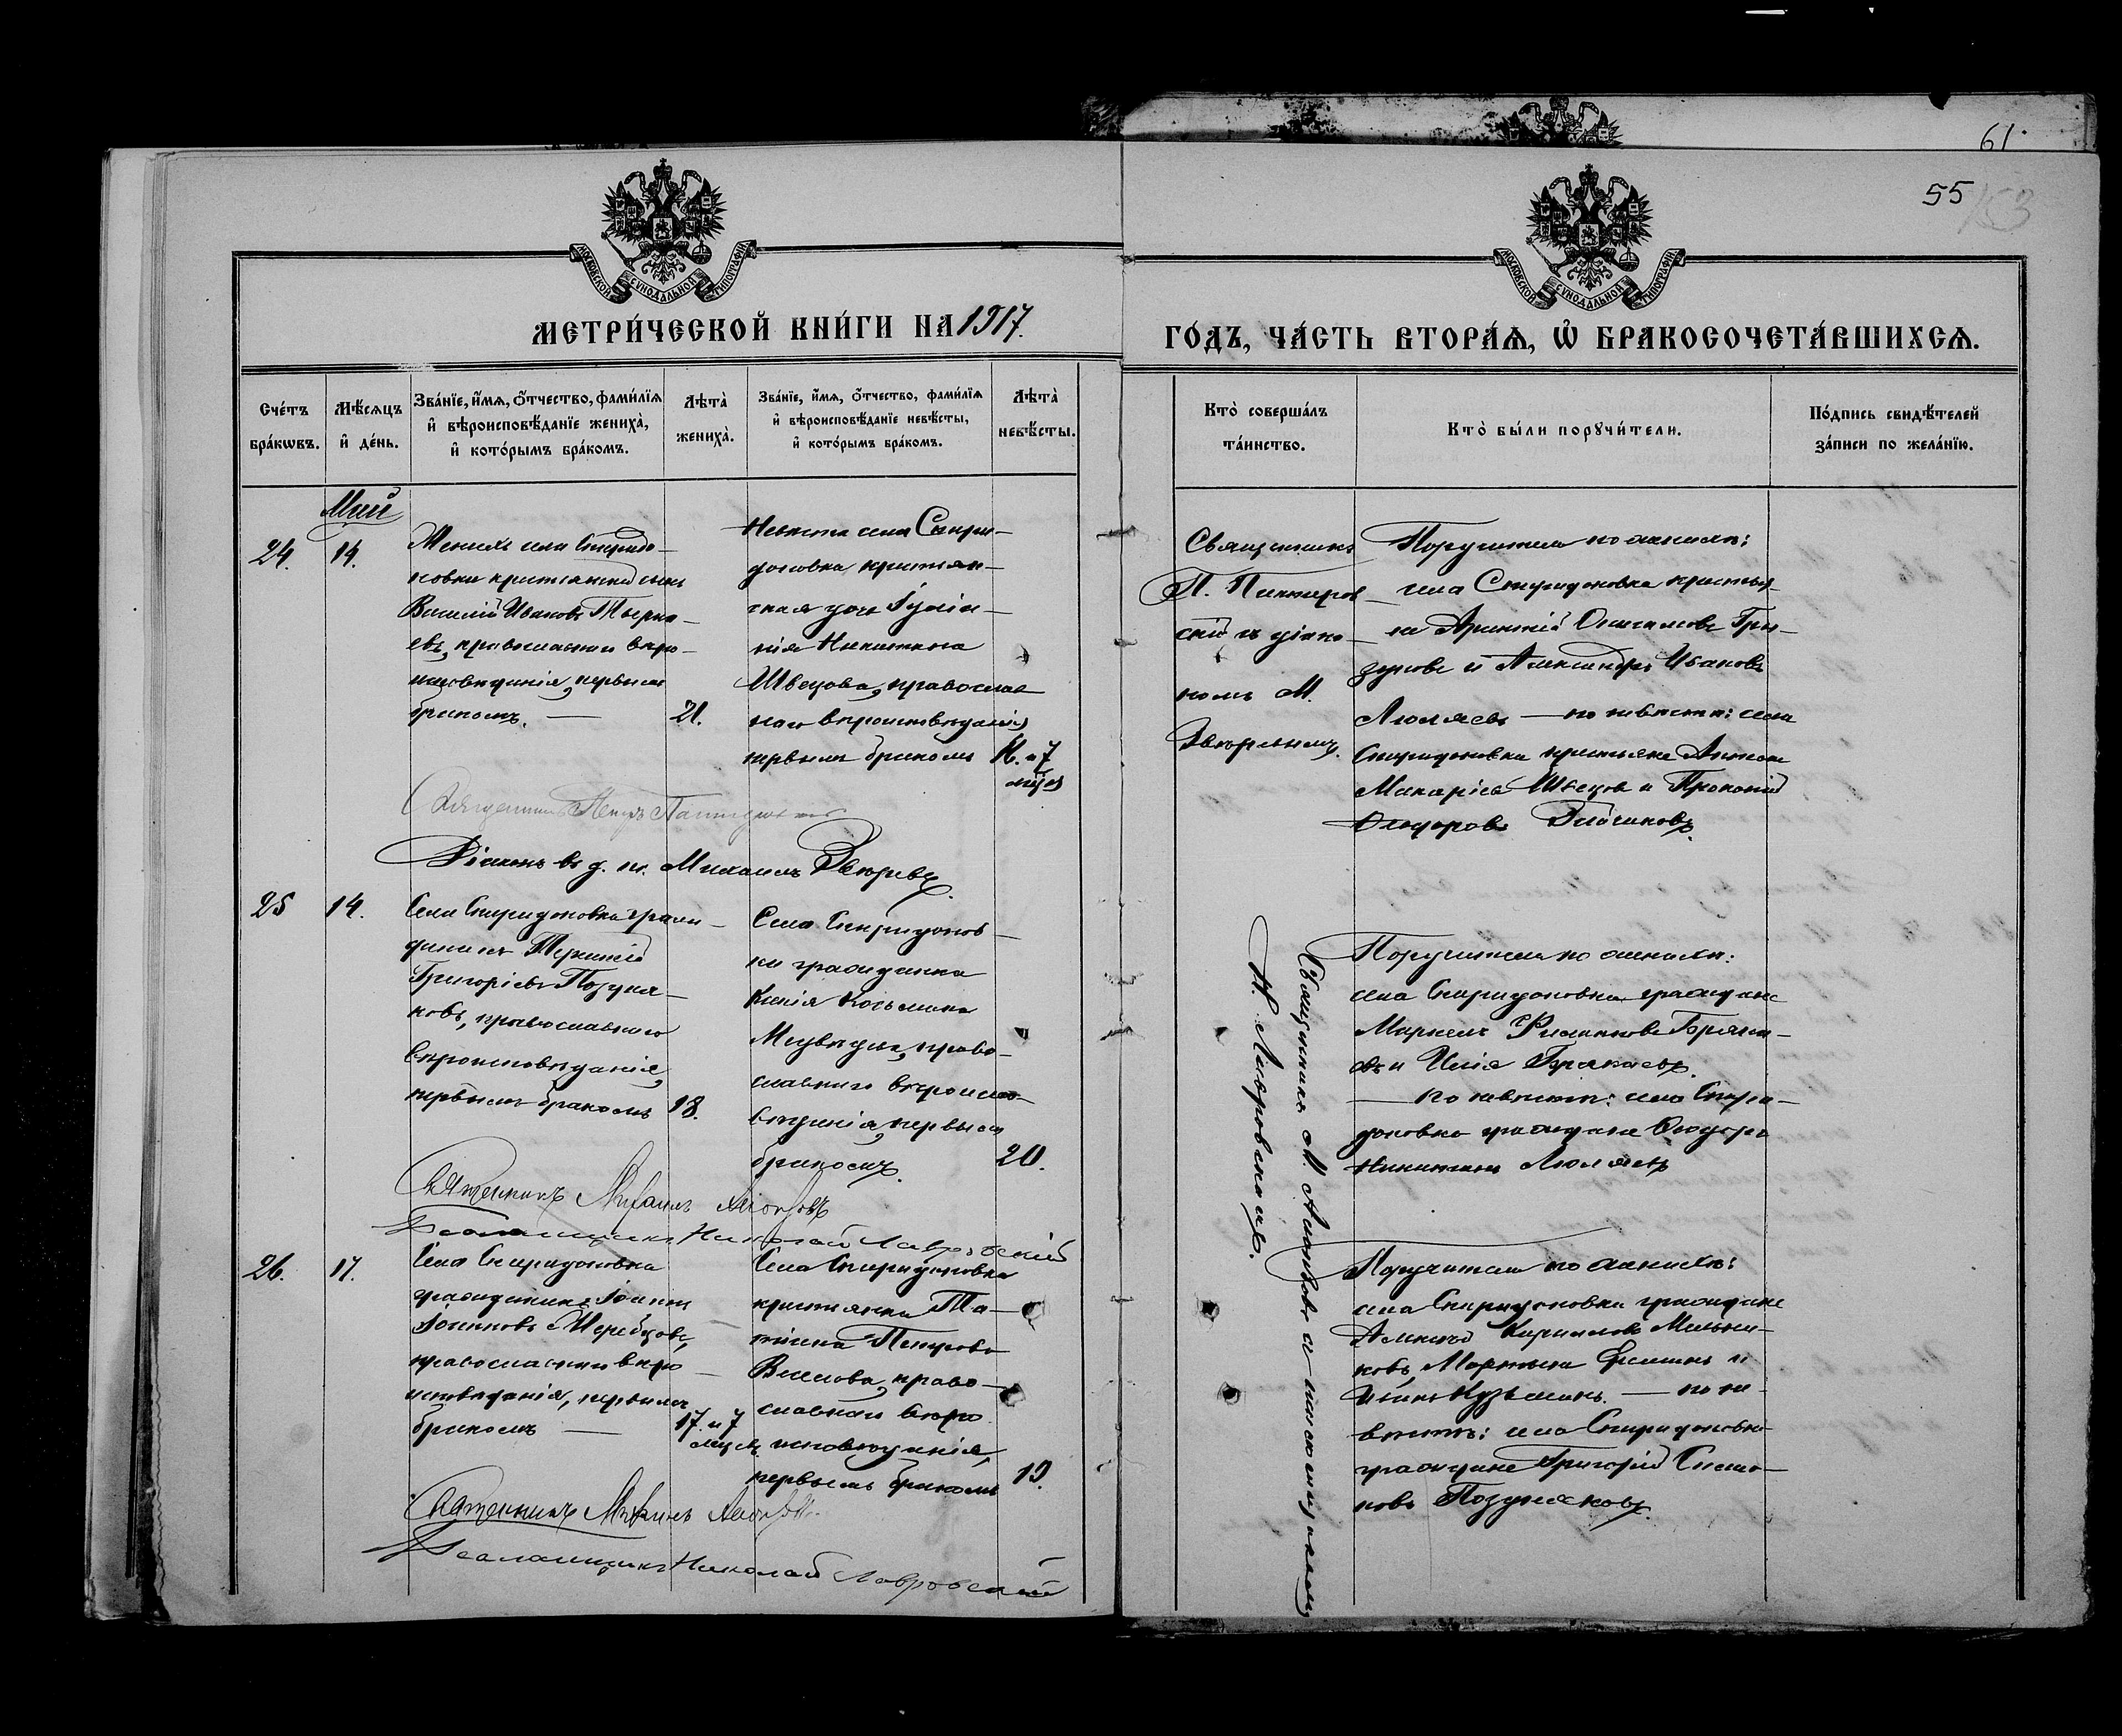 61.
55
153
МОСКОВСКОЙ СѴНОДАЛЬНОЙ ТИПОГРАФІИ
МОСКОВСКОЙ СѴНОДАЛЬНОЙ ТИПОГРАФІИ
МЕТРИ́ЧЕСКОЙ КНИ́ГИ НА 1917.
ГО́ДЪ, ЧА́СТЬ ВТОРА́Ѧ, Ѡ҆ БРАКОСОЧЕТА́ВШИХСѦ.
Сче́тъ
бра́кѡвъ.
Мѣ́сѧцъ
и҆ де́нь.
Зва́нїе, и҆́мѧ, ѻ҆́тчество, фами́лїѧ
и҆ вѣроисповѣ́данїе жениха̀,
и҆ кото́рымъ бра́комъ.
Лѣ́та̀
жениха̀.
Зва́нїе, и҆́мѧ, ѻ҆́тчество, фами́лїѧ
и҆ вѣроисповѣ́данїе невѣ́сты,
и҆ кото́рымъ бра́комъ.
Лѣ́та̀
невѣ́сты.
Кто̀ соверша́лъ
та́инство.
Кто̀ бы́ли порꙋчи́тели.
По́дпись свидѣ́телей
за́писи по жела́нїю.
Май
24.
14.
Женихъ села Спиридо-
новки крестьянскій сынъ
Василій Ивановъ
евъ, православнаго веро-
исповѣданія, первымъ
бракомъ. —
21.
Невѣста села Спири-
доновка крестьян-
ская дочь Іуліа-
нія Никитина
Швецова, православ
наго вѣроисповѣданія
первымъ бракомъ
16. и 7
мѣс.
Священникъ
П. Пиктиров
скій и діако-
номъ М.
Звѣревымъ.
Поручители по женихѣ:
села Спиридоновка крестья-
не
и Александръ Ивановъ
Люляевъ — по невѣстѣ: села
Спиридоновки крестьяне Антонъ
Макаріевъ Швецовъ и Прокопій
Ѳеодоровъ
Священникъ Петръ
Діаконъ въ д. п. Михаилъ Звѣревъ.
25
14.
Села Спиридоновка граж-
данинъ Терентій
Григоріевъ Поздня-
ковъ, православнаго
вѣроисповѣданія,
первымъ бракомъ
18.
Села Спиридонов-
ки гражданка
Ксенія Косьмина
Медвѣдева, право-
славнаго вѣроиспо-
вѣданія, первымъ
бракомъ.
20.
Поручители по женихѣ:
села Спиридоновка граждане
и Илія
— по невѣстѣ: села Спири-
доновка граждане Ѳеодоръ
Никитинъ Люляевъ
Священникъ Михаилъ
Псаломщикъ Николай Лавровскій
Священникъ М.
и псаломщикомъ
Н. Лавровскимъ.
26.
17.
Села Спиридоновка
гражданинъ Іоаннъ
Іоанновъ Жеребцовъ,
православнаго веро-
исповѣданія, первымъ
бракомъ —
17. и 7
мѣс.
Села Спиридоновка
крестьянка Та-
тіана Петрова
Власова, право-
славнаго веро
исповѣданія,
первымъ бракомъ
19.
Поручители по женихѣ:
села Спиридоновки граждане
Алексѣй Кирилловъ Мельни-
ковъ, Мартынъ
— по не-
вѣстѣ: села Спиридоновки
граждане Григорій Симо-
новъ Поздняковъ.
Священникъ Михаилъ
Псаломщикъ Николай Лавровскій